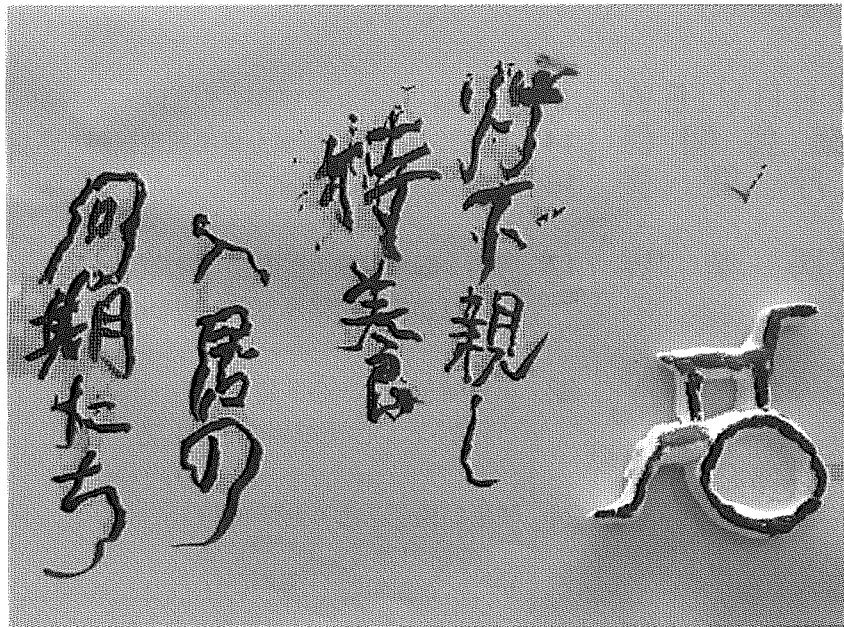 灯下親し
特養
入居の
同期たち